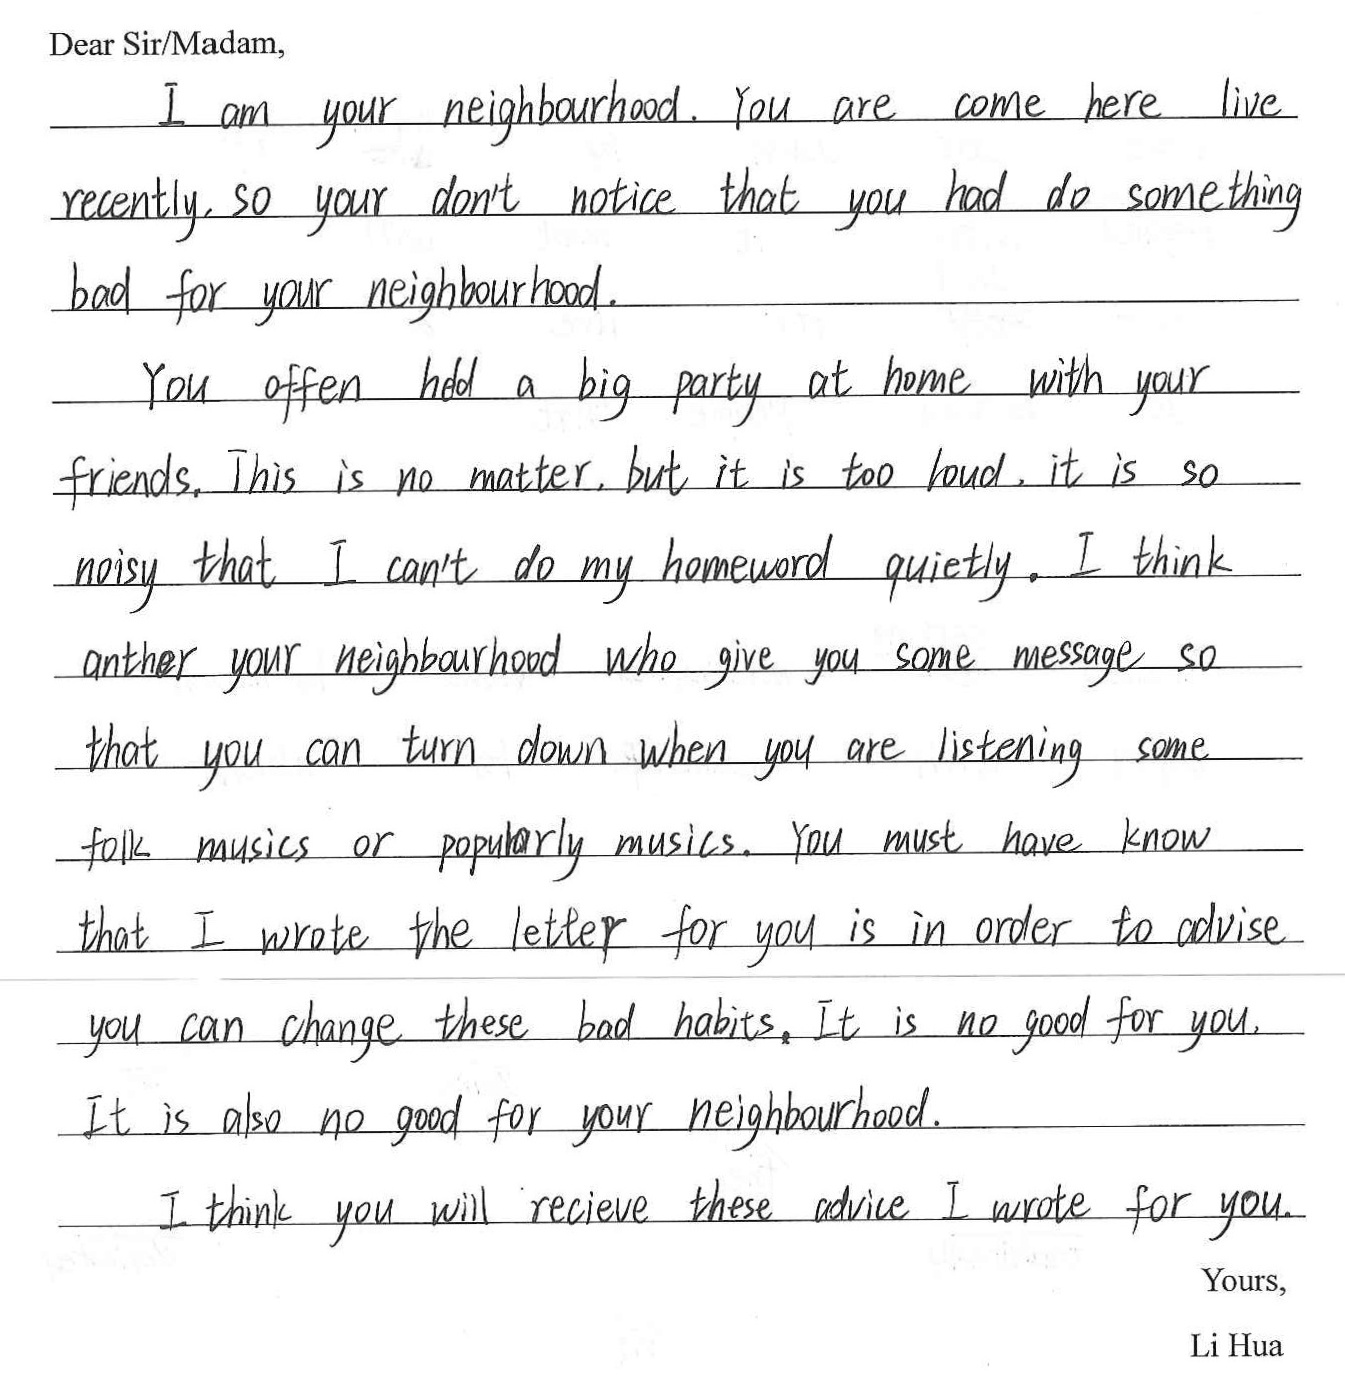 Dear Sir/Madam,
I am your neighbourhood. You are come here live
recently, so your don't notice that you had do something
bad for your neighbourhood.
You offen held a big party at home with your
friends. This is no matter, but it is too loud, it is so
noisy that I can't do my homeword quietly. I think
anther your neighbourhood who give you some message so
that you can turn down when you are listening some
folk musics or popularly musics. You must have know
that I wrote the letter for you is in order to advise
you can change these bad habits. It is no good for you.
It is also no good for your neighbourhood.
I think you will recieve these advice I wrote for you.
Yours,
Li Hua